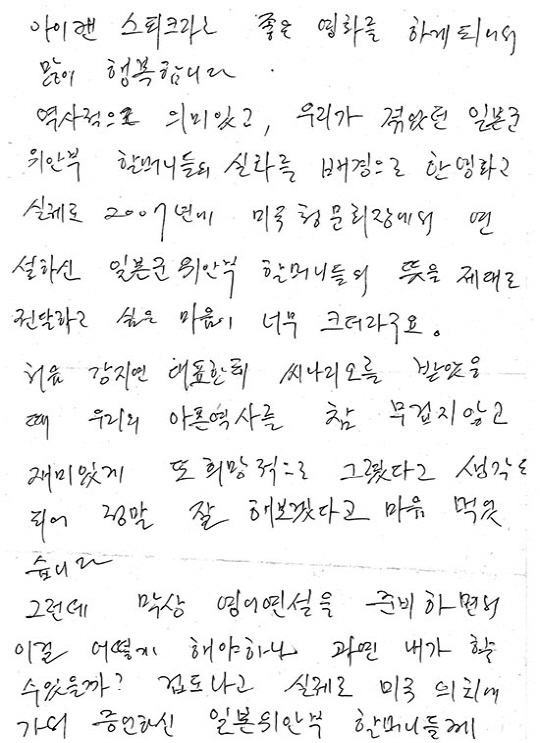 아이캔 스피크라는 좋은 영화를 하게되어서
많이 행복합니다.
역사적으로 의미있고, 우리가 겪었던 일본군
위안부 할머니들의 실화를 배경으로 한영화고
실제로 2007년에 미국청문회장에서 연
설하신 일본군위안부 할머니들의 뜻을 제대로
전달하고 싶은 마음이 너무 크더라구요.
처음 강지연 대표한테 씨나리오를 받았을
때 우리의 아픈역사를 참 무겁지않고
재미있게 또희망적으로 그렸다고 생각
되어 정말 잘 해보겠다고 마음 먹었
습니다
그런데 막상 영어연설을 준비하면서
이걸 어떻게 해야하나 과연 내가 할
수있을까? 겁도나고 실제로 미국 의회에
가서 증언하신 일본위안부 할머니들께